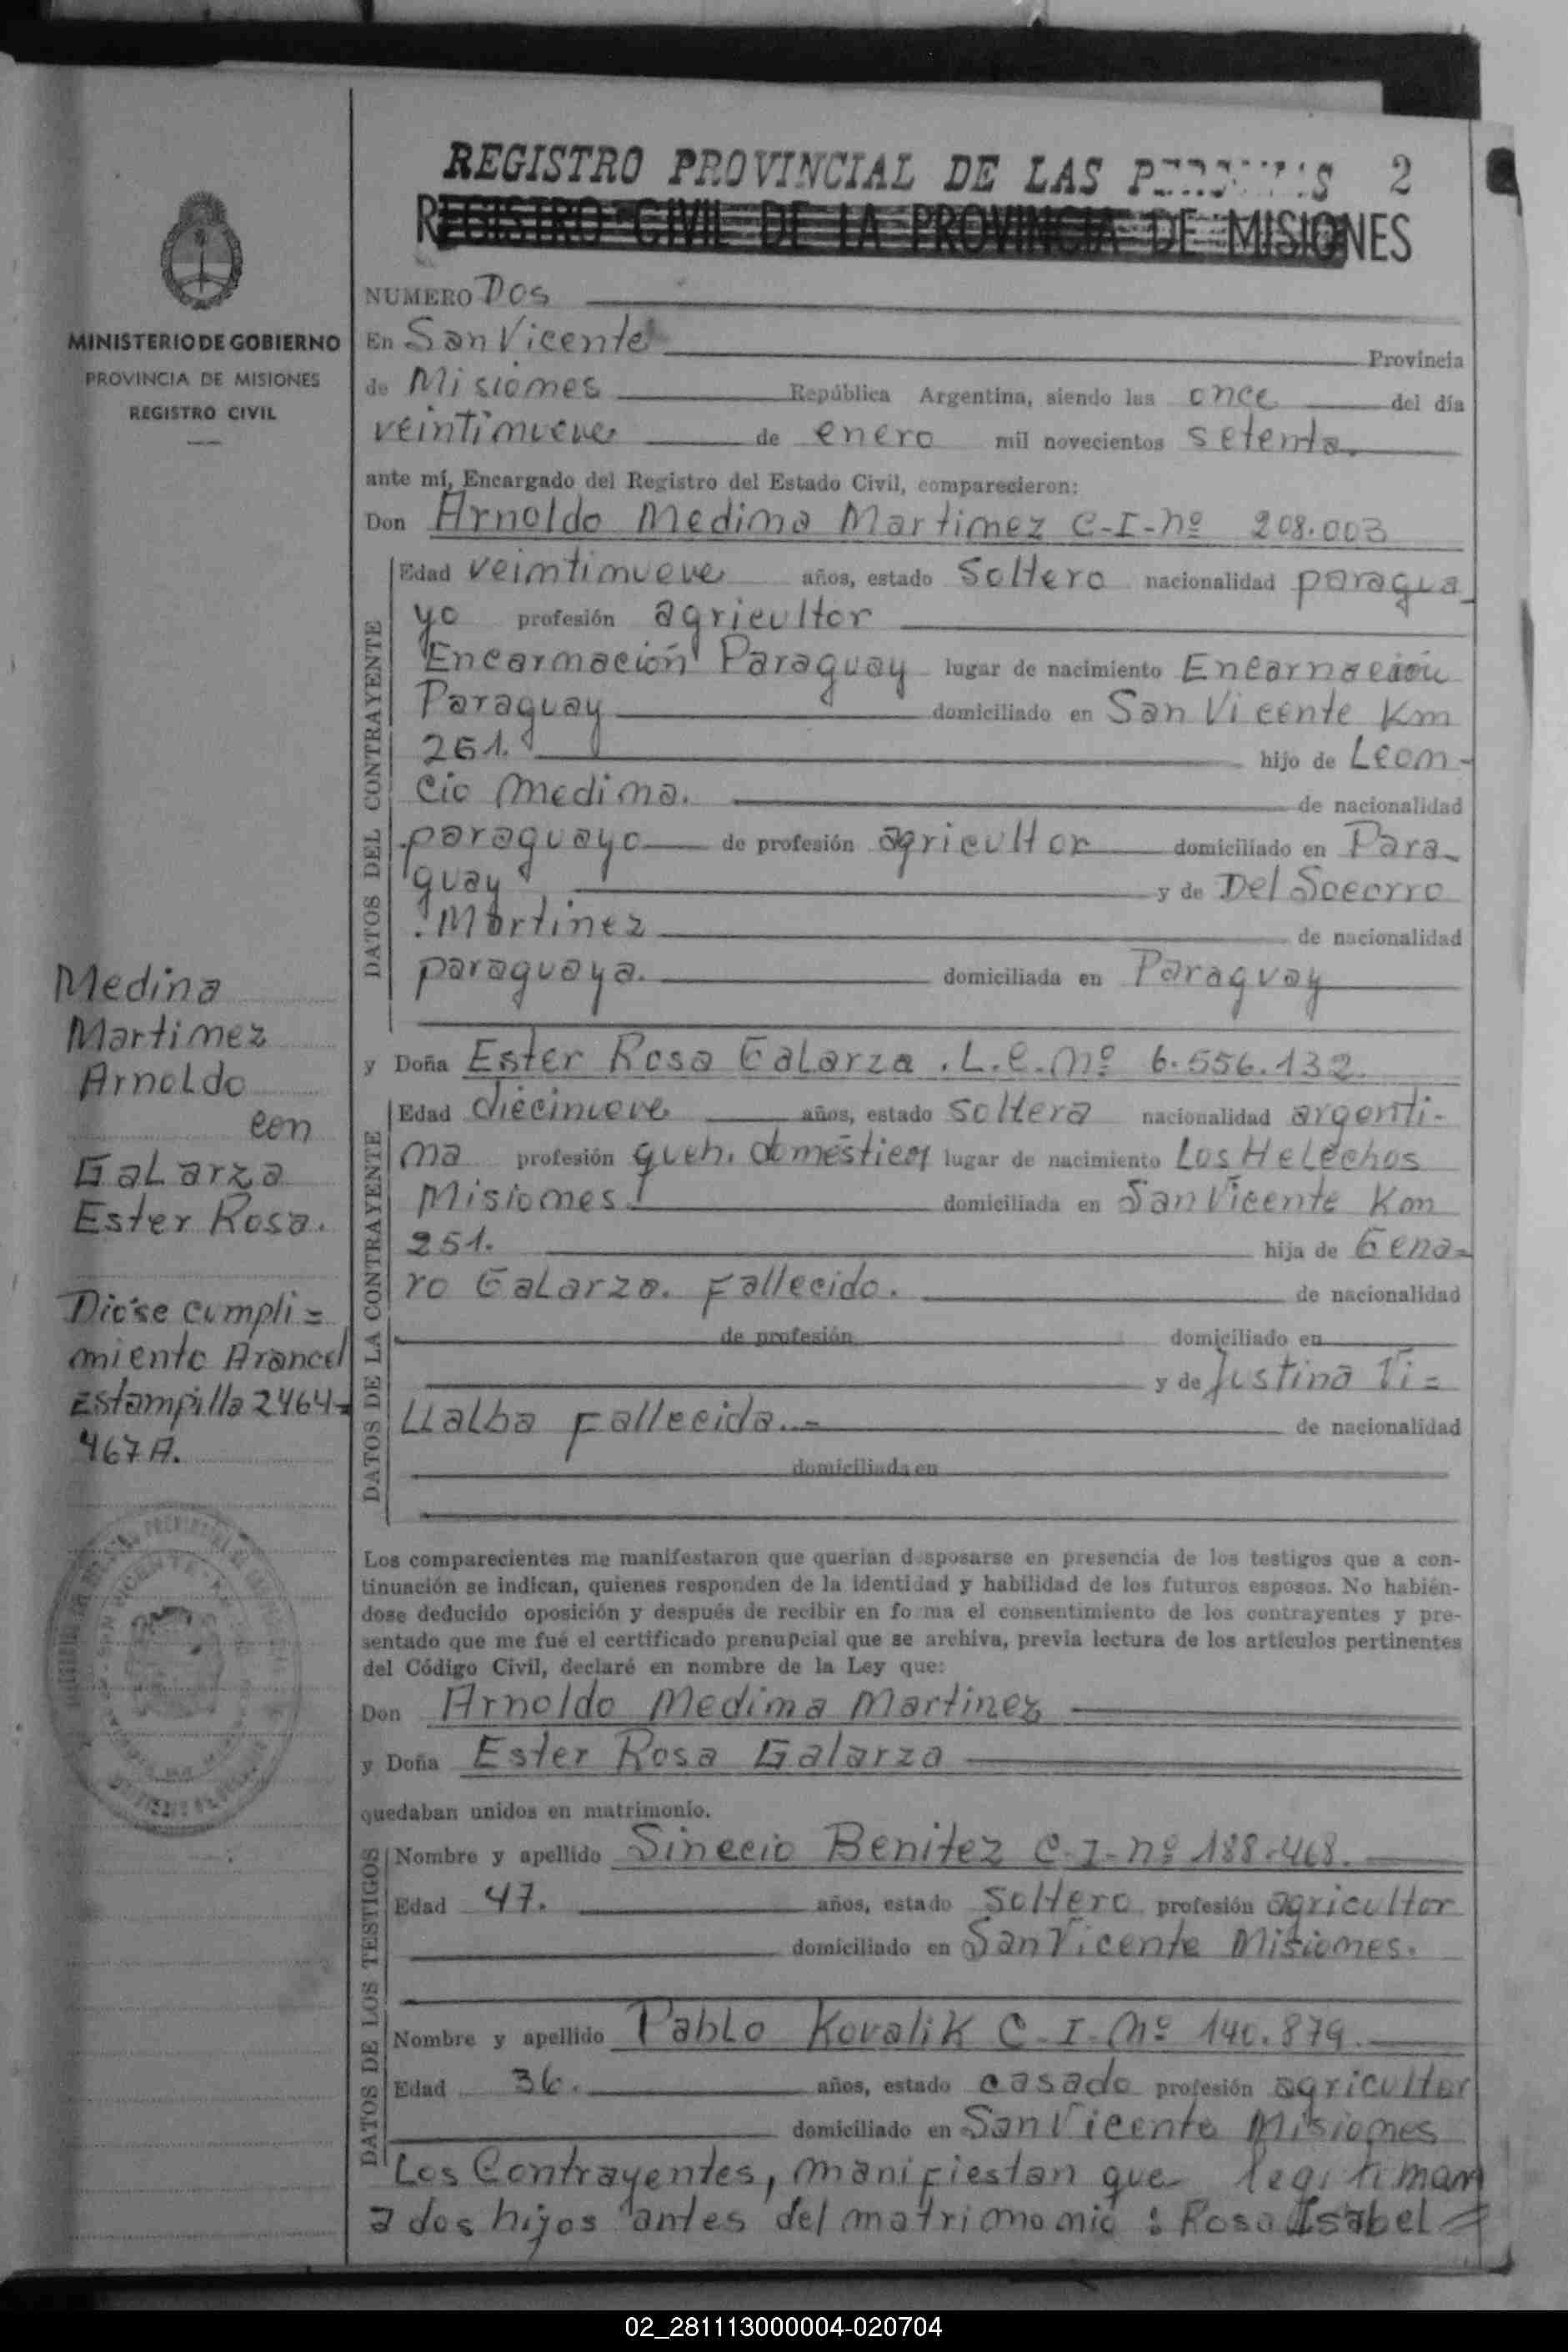 REGISTRO PROVINCIAL DE LAS PERSONAS 2
REGISTRO CIVIL DE LA PROVINCIA DE MISIONES
MINISTERIO DE GOBIERNO
PROVINCIA DE MISIONES
REGISTRO CIVIL
NUMERO Dos
En San Vicente Provincia
de Misiones República Argentina, siendo las once del día
veintinueve de enero mil novecientos setenta.
ante mí, Encargado del Registro del Estado Civil, comparecieron:
Don Arnoldo Medina Martinez C-I-nº 208.003
DATOS DEL CONTRAYENTE
Edad veintinueve años, estado soltero nacionalidad paragua-
yo profesión agricultor
Encarnación Paraguay lugar de nacimiento Encarnación
Paraguay domiciliado en San Vicente Km
251. hijo de Leon-
cio Medina. de nacionalidad
paraguayo de profesión agricultor domiciliado en Para-
guay y de Del Socorro
Martinez de nacionalidad
paraguaya. domiciliada en Paraguay
Medina
Martinez
Arnoldo
con
Galarza
Ester Rosa.
Dióse cumpli=
miento Arancel
Estampilla 2464-
467A.
y Doña Ester Rosa Galarza . L.C. Nº 6.556.132
DATOS DE LA CONTRAYENTE
Edad diecinueve años, estado soltera nacionalidad argenti-
na profesión queh. domésticos lugar de nacimiento Los Helechos
Misiones. domiciliada en San Vicente Km
251. hija de Gena=
ro Galarza. Fallecido. de nacionalidad
de profesión domiciliado en
y de Justina Vi=
llalba Fallecida.- de nacionalidad
domiciliada en
Los comparecientes me manifestaron que querían desposarse en presencia de los testigos que a con-
tinuación se indican, quienes responden de la identidad y habilidad de los futuros esposos. No habién-
dose deducido oposición y después de recibir en forma el consentimiento de los contrayentes y pre-
sentado que me fué el certificado prenupcial que se archiva, previa lectura de los artículos pertinentes
del Código Civil, declaré en nombre de la Ley que:
Don Arnoldo Medina Martinez
y Doña Ester Rosa Galarza
quedaban unidos en matrimonio.
DATOS DE LOS TESTIGOS
Nombre y apellido Sinecio Benitez C-I-nº 188.468.
Edad 47. años, estado soltero profesión agricultor
domiciliado en San Vicente Misiones.
Nombre y apellido Pablo Kovalik C-I-Nº 140.879.
Edad 36. años, estado casado profesión agricultor
domiciliado en San Vicente Misiones
Los Contrayentes, manifiestan que legitiman
a dos hijos antes del matrimonio : Rosa Isabel =
02_281113000004-020704